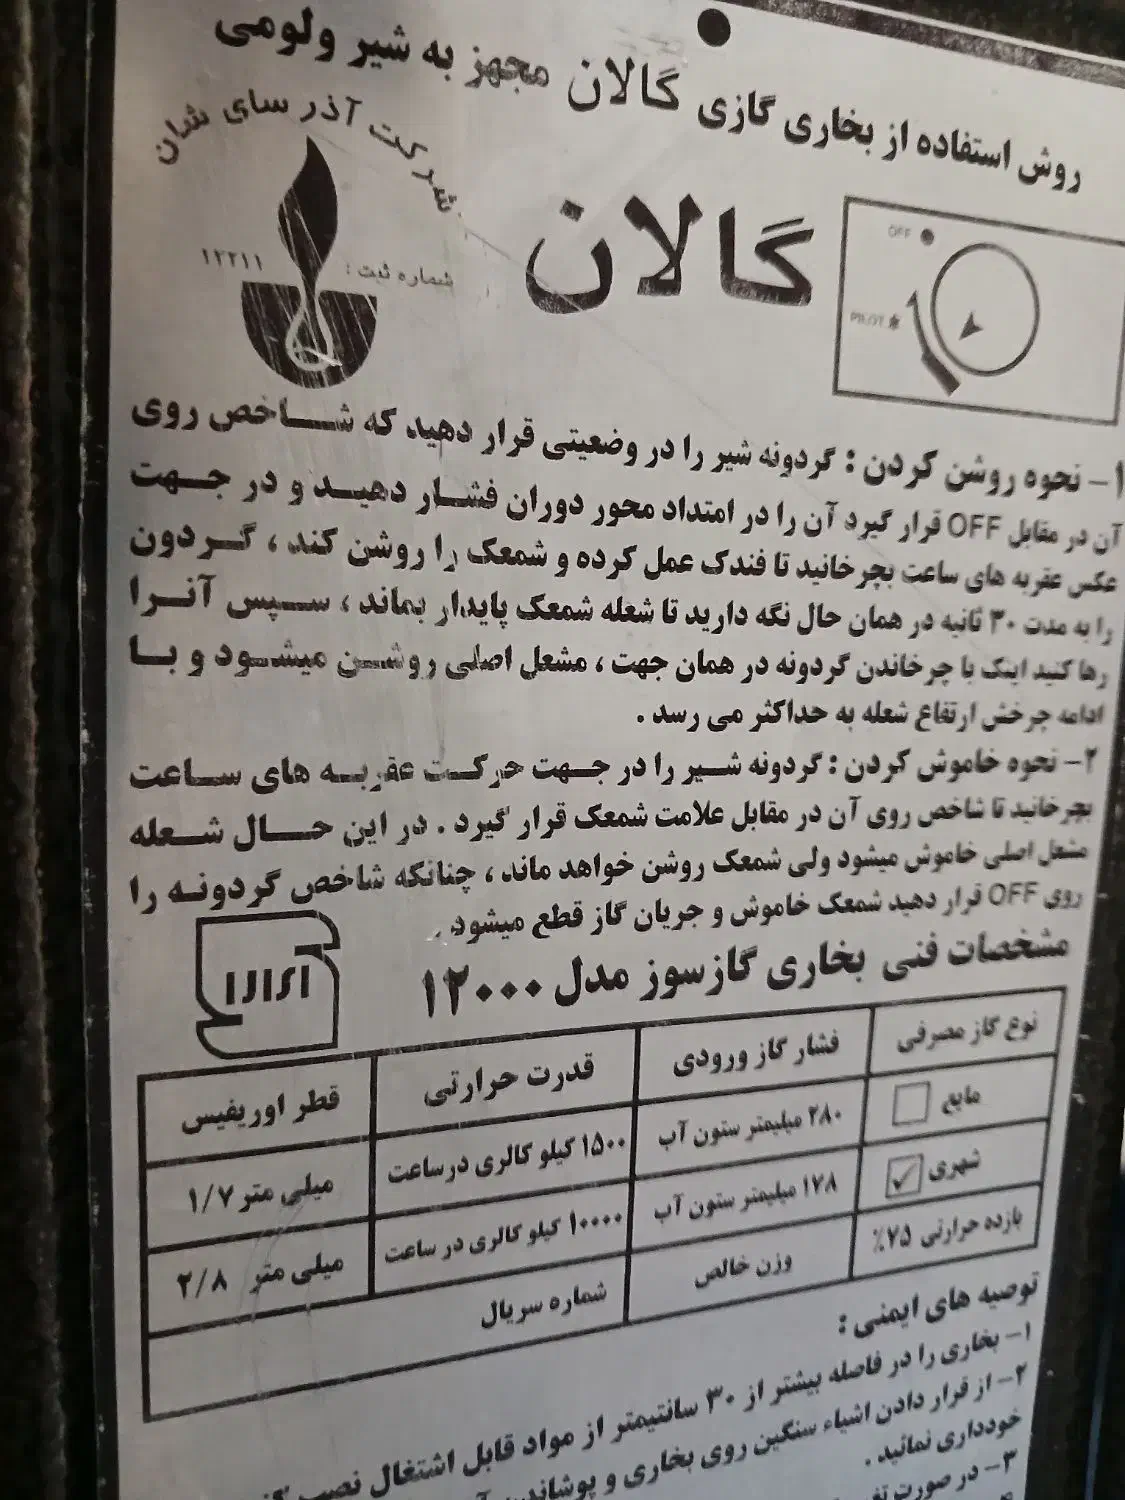 روش استفاده از بخاری گازی گالان مجهز به شیر ولومی
شرکت آذر سای شان
شماره ثبت : ۱۲۲۱۱
گالان
OFF
PILOT
۱- نحوه روشن کردن : گردونه شیر را در وضعیتی قرار دهید که شاخص روی
آن در مقابل OFF قرار گیرد آن را در امتداد محور دوران فشار دهید و در جهت
عکس عقربه های ساعت بچرخانید تا فندک عمل کرده و شمعک را روشن کند ، گردون
را به مدت ۳۰ ثانیه در همان حال نگه دارید تا شعله شمعک پایدار بماند ، سپس آنرا
رها کنید اینک با چرخاندن گردونه در همان جهت ، مشعل اصلی روشن میشود و با
ادامه چرخش ارتفاع شعله به حداکثر می رسد .
۲- نحوه خاموش کردن : گردونه شیر را در جهت حرکت عقربه های ساعت
بچرخانید تا شاخص روی آن در مقابل علامت شمعک قرار گیرد . در این حال شعله
مشعل اصلی خاموش میشود ولی شمعک روشن خواهد ماند ، چنانکه شاخص گردونه را
روی OFF قرار دهید شمعک خاموش و جریان گاز قطع میشود .
مشخصات فنی بخاری گازسوز مدل ۱۲۰۰۰
نوع گاز مصرفی فشار گاز ورودی قدرت حرارتی قطر اوریفیس
مایع ۲۸۰ میلیمتر ستون آب ۱۵۰۰ کیلو کالری درساعت ۱/۷ میلی متر
شهری ✓ ۱۷۸ میلیمتر ستون آب ۱۰۰۰۰ کیلو کالری در ساعت ۲/۸ میلی متر
بازده حرارتی ۷۵٪ وزن خالص شماره سریال
توصیه های ایمنی :
۱- بخاری را در فاصله بیشتر از ۳۰ سانتیمتر از مواد قابل اشتغال نصب
۲- از قرار دادن اشیاء سنگین روی بخاری و پوشاندن
خودداری نمائید .
۳- در صورت